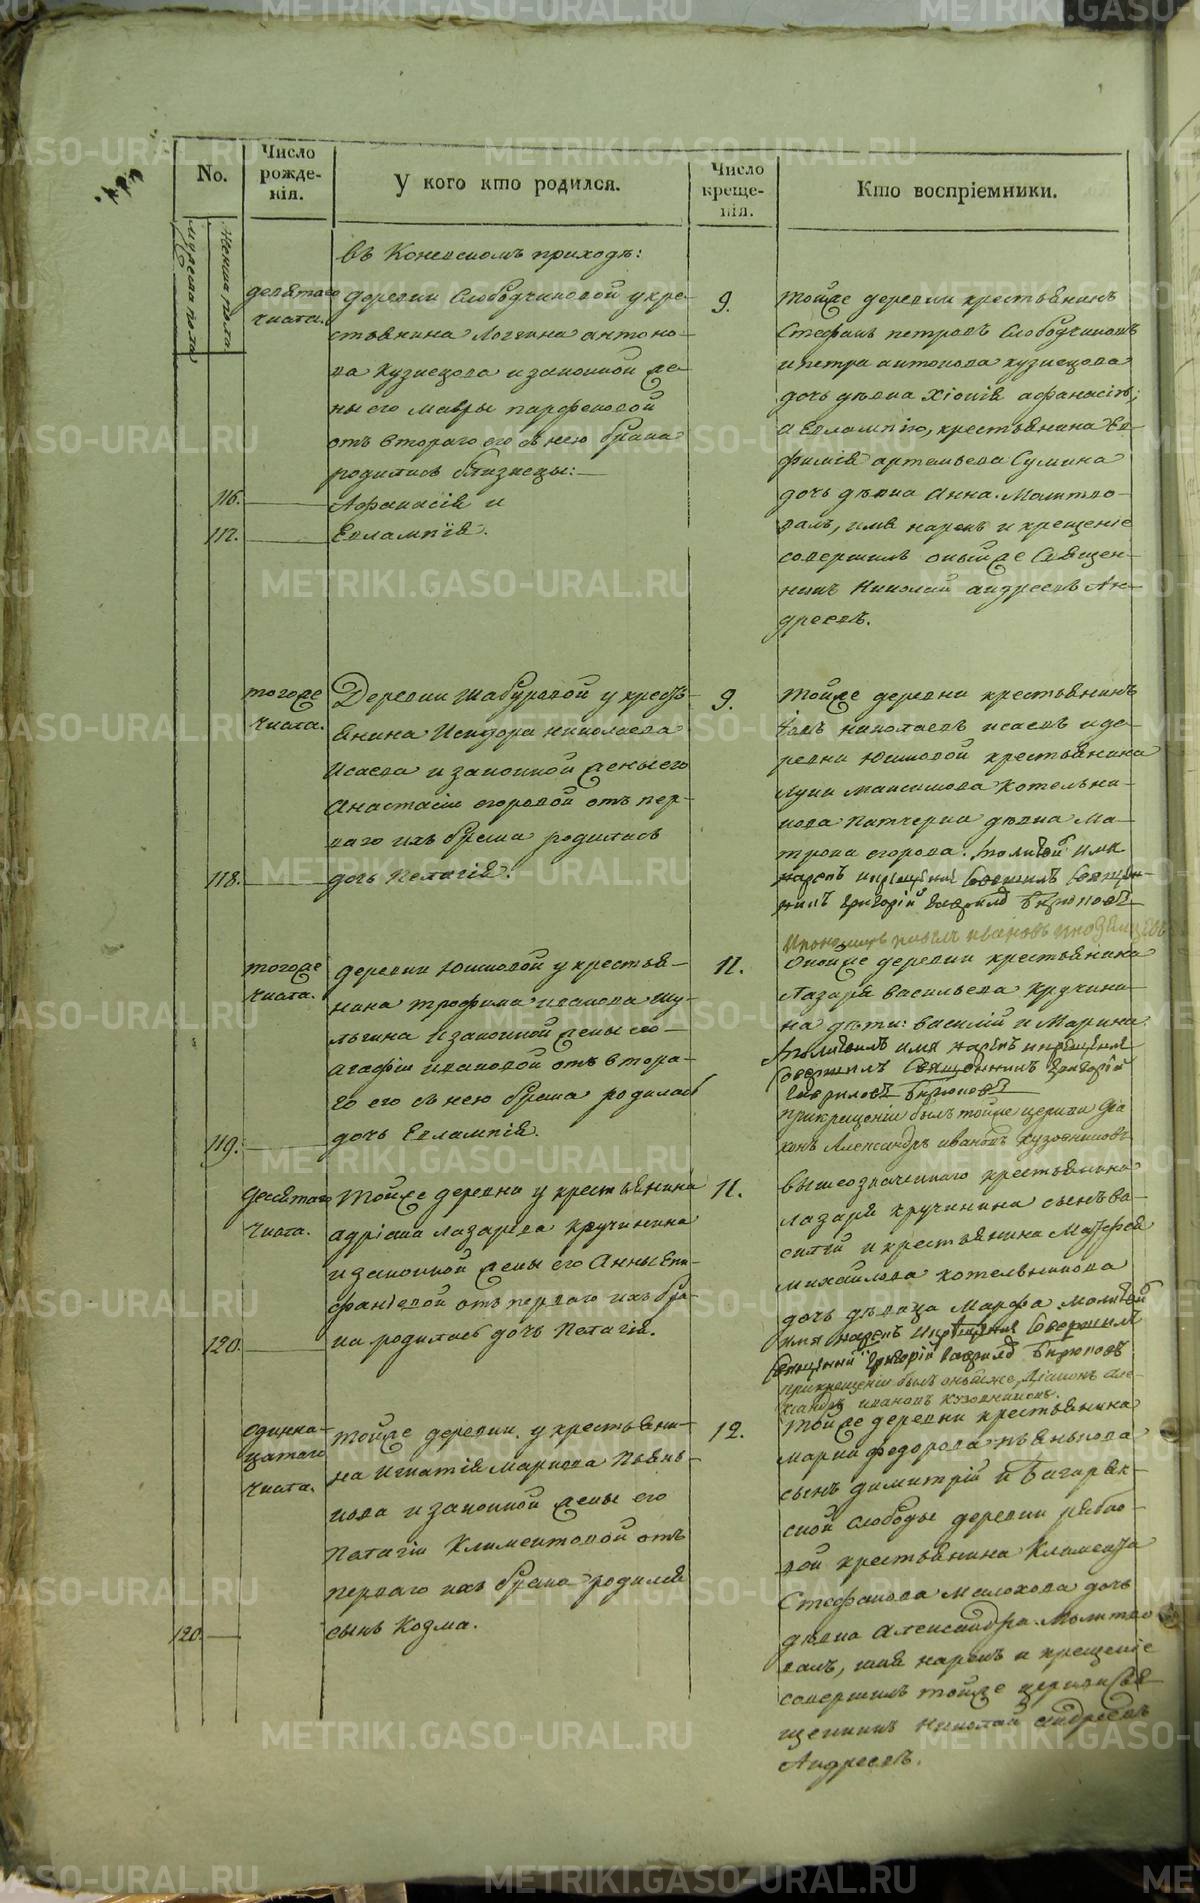 No.
Число рожде-
нія.
У кого кто родился.
Число креще-
нія.
Кто воспріемники.
мужеска пола
женска пола
въ Коневскомъ приходѣ:
девятаго
числа.
деревни Слободчиковой у кре-
стьянина Логгина антоно-
ва кузнецова и законной же-
ны его мавры парфеновой
отъ втораго его съ нею брака
родились близнецы:
116.
Афанасія и
117.
Евлампія.
9.
тойже деревни крестьянинъ
Стефанъ петровъ Слободчиковъ
и петра антонова кузнецова
дочь дѣвка Хіонія афанасіи;
а Евлампію, крестьянина Ев-
фимія артемьева Сумина
дочь дѣвка анна. Молитво-
валъ, имя нарекъ и крещеніе
совершилъ оныйже Священ-
никъ Николай андреевъ Ан-
дреевъ.
тогоже
числа.
Деревни шабуровой у кресть-
янина Исидора николаева
Исаева и законной жены его
анастасіи егоровой отъ пер-
ваго ихъ брака родилась
118.
дочь Пелагія.
9.
тойже деревни крестьянинъ
Іовъ николаевъ исаевъ и де-
ревни Юшковой крестьянина
луки максимова котельни-
кова патчерка дѣвка Ма-
трона егорова. молитвой имя
нарекъ и крещеніе совершилъ священ-
никъ григорій гавриловъ Бирюковъ
тогоже
числа.
деревни Юшковой у крестья-
нина трофима иванова шу-
льгина и законной жены его
агафіи ивановой отъ втора-
го его съ нею брака родилась
119.
дочь Евлампія.
11.
оной же деревни крестьянина
Лазаря васильева кручини-
на дѣти: василій и Марина
молитвилъ имя нарекъ и крещеніе
совершилъ Священникъ григорій
гавриловъ Бирюковъ
прикрещеніи былъ тойже церкви дья-
конъ Александръ ивановъ кузовниковъ
десятаго
числа.
тойже деревни у крестьянина
адріана лазарева кручинина
и законной жены его Анны Епи-
фаніевой отъ перваго ихъ бра-
120.
ка родилась дочь Пелагія.
11.
вышеозначеннаго крестьянина
лазаря кручинина сынъ ва-
силій и крестьянина Матфея
михайлова котельникова
дочь дѣвица Марфа. молитвой
имя нарекъ и крещеніе совершилъ
священникъ григорій гавриловъ Бирюковъ
прикрещеніи былъ онъ же діаконъ Але-
ксандръ ивановъ кузовниковъ.
одинна-
цатаго
числа.
тойже деревни у крестьяни-
на Игнатія Маркова Пьянь-
кова и законной жены его
Пелагіи Климентовой отъ
перваго ихъ брака родился
120.
сынъ Козма.
12.
тойже деревни крестьянина
марка федорова пьянькова
сынъ димитрій и Багаряк-
ской слободы деревни рябко-
вой крестьянина Климента
Стефанова Малохова дочь
дѣвка александра. Молитво-
валъ, имя нарекъ и крещеніе
совершилъ тойже церкви свя-
щенникъ николай андреевъ
Андреевъ.